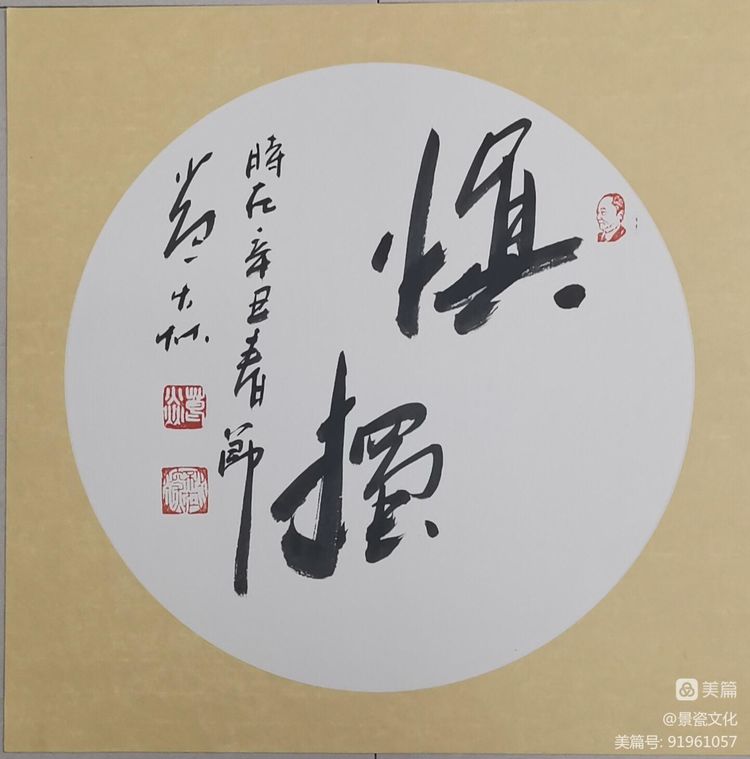 慎
獨
時在辛丑春節
美篇
@景瓷文化
美篇号: 91961057